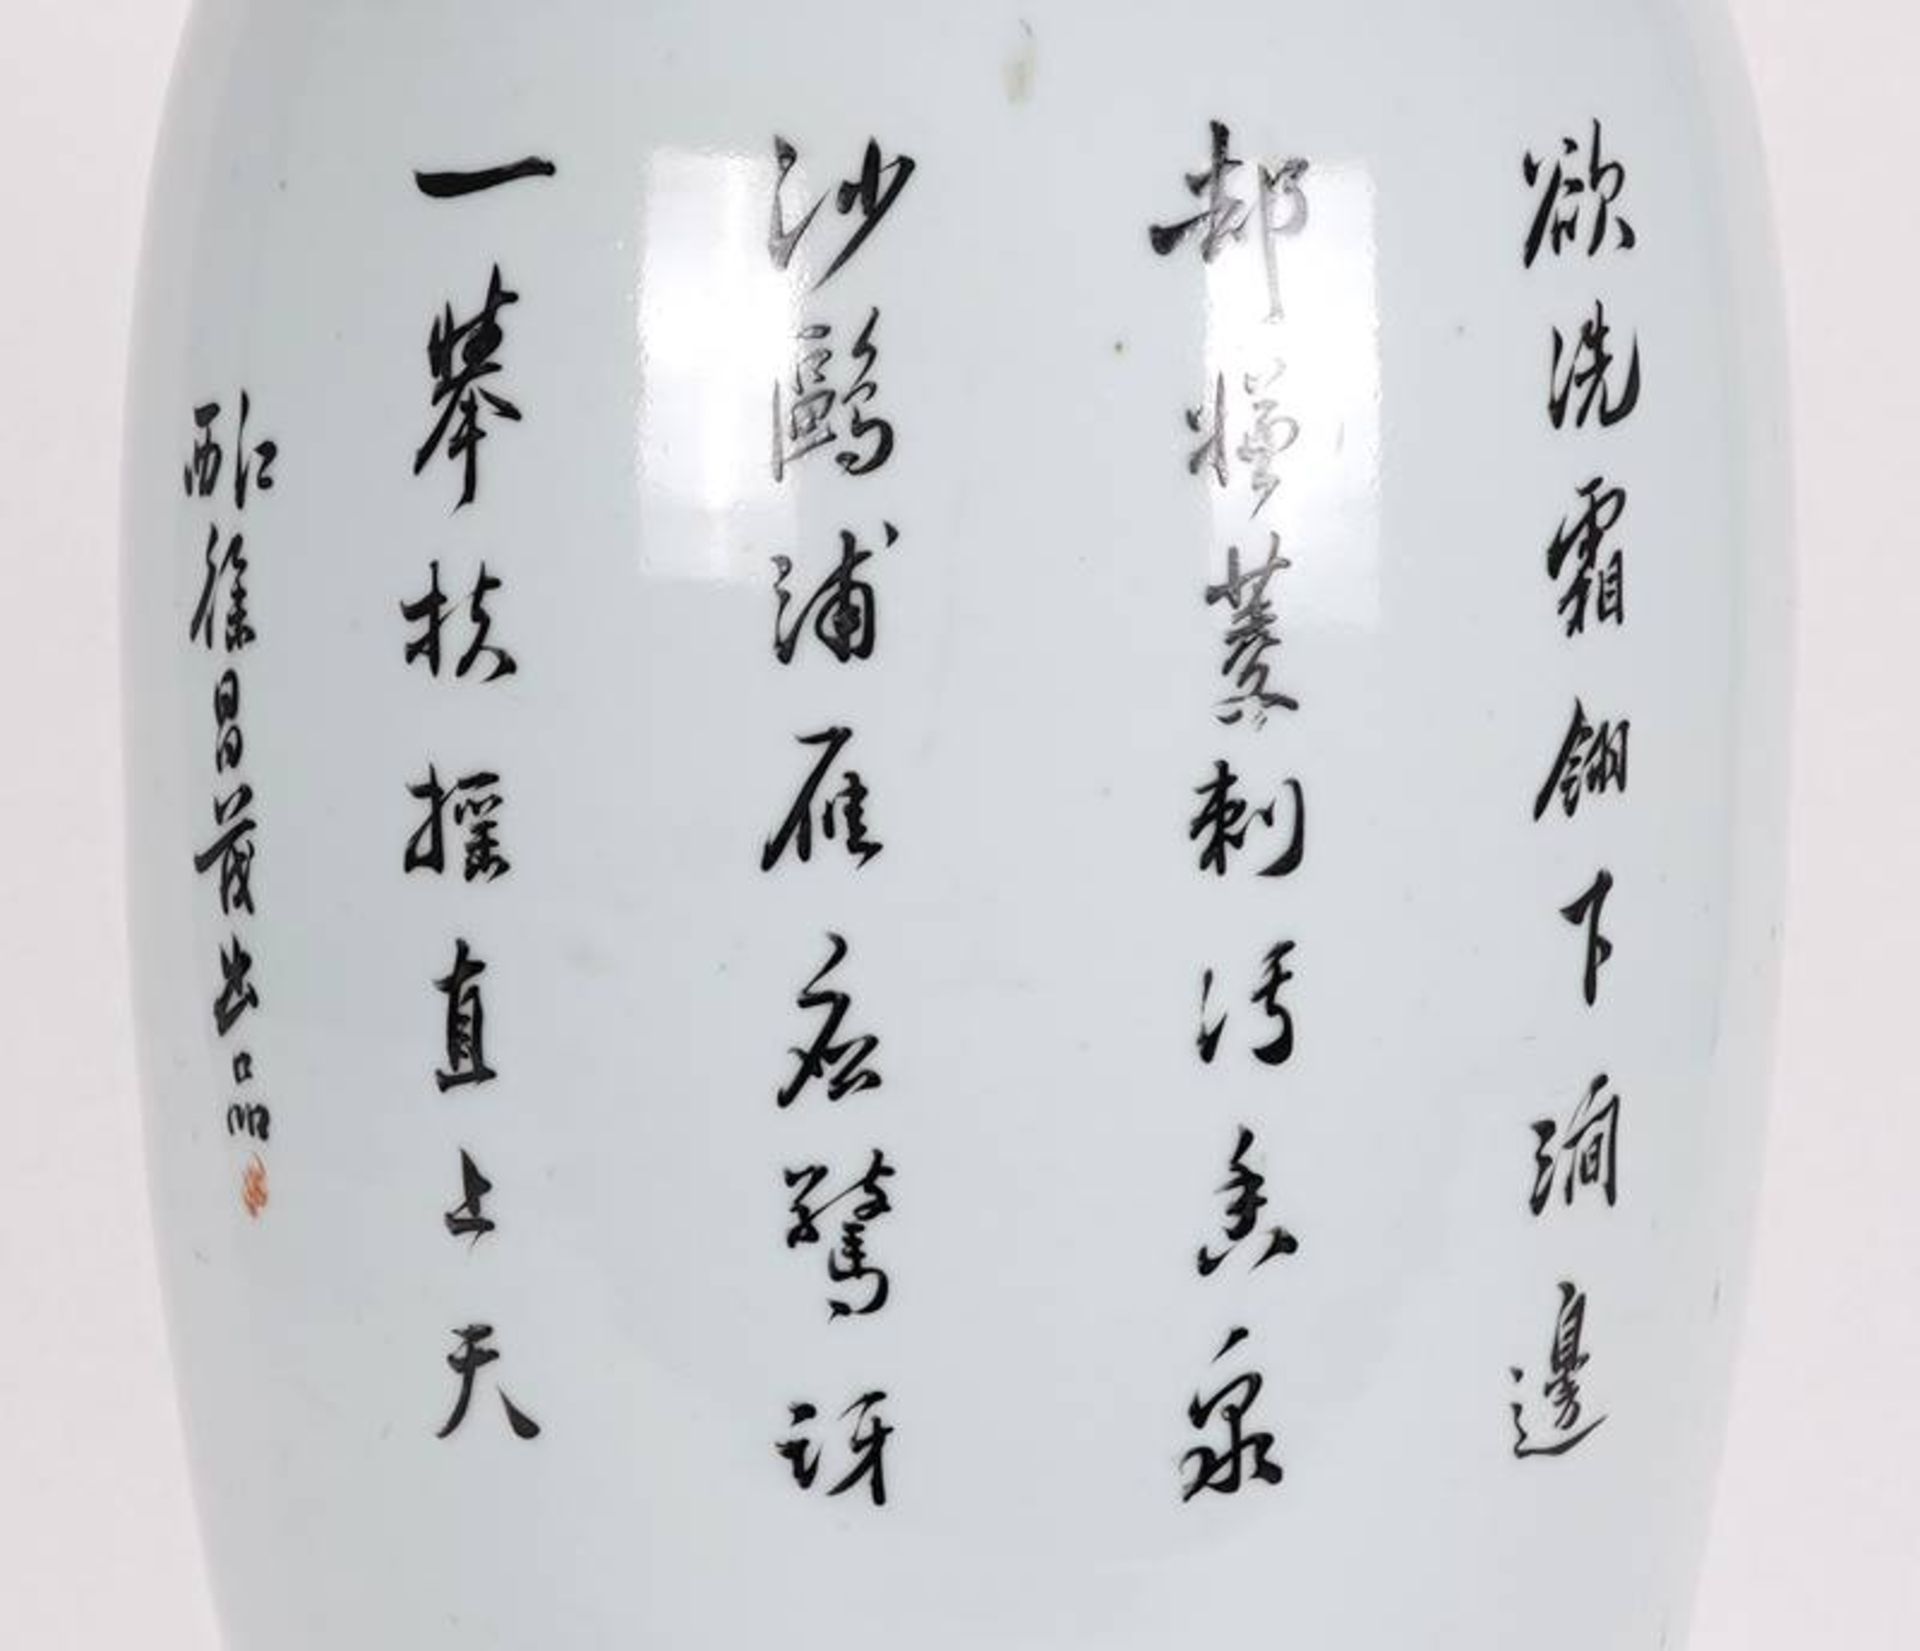 欲洗霜翎下澗邊
却嫌菱刺污香泉
沙鷗浦雁應驚訝
一舉扶搖直上天
江西徐昌茂出品